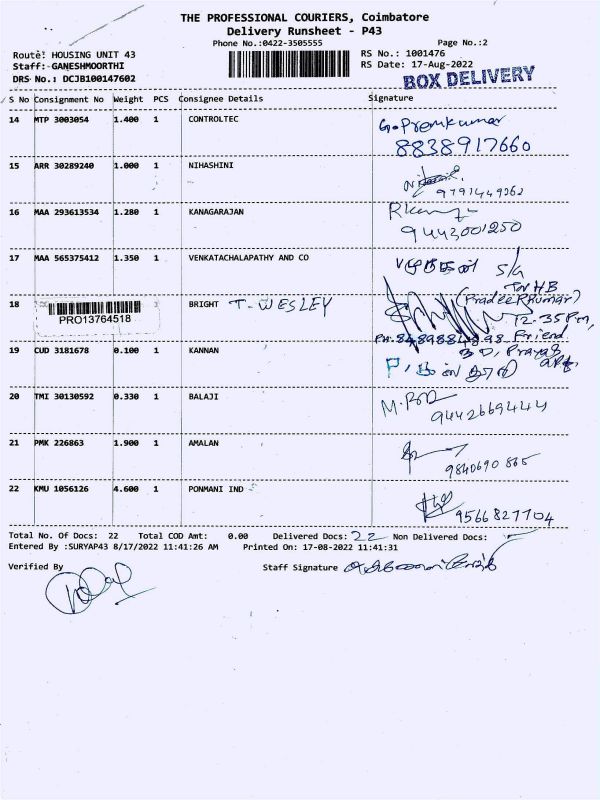 THE PROFESSIONAL COURIERS, Coimbatore
Delivery Runsheet - P43
Phone No.:0422-3505555 Page No.:2
Route: HOUSING UNIT 43 RS No.: 1001476
Staff:-GANESHMOORTHI RS Date: 17-Aug-2022
DRS No.: DCJB100147602 BOX DELIVERY
S No Consignment No Weight PCS Consignee Details Signature
14 MTP 3003054 1.400 1 CONTROLTEC G.Premkumar
8838917660
15 ARR 30289240 1.000 1 NIHASHINI
9791449362
16 MAA 293613534 1.280 1 KANAGARAJAN
9443001250
17 MAA 565375412 1.350 1 VENKATACHALAPATHY AND CO S/a
TNHB
18 BRIGHT T-WESLEY (PradeePKumar)
PRO13764518 12.35Pm,
Friend
19 CUD 3181678 0.100 1 KANNAN
20 TMI 30130592 0.330 1 BALAJI
9442669444
21 PMK 226863 1.900 1 AMALAN
9840690865
22 KMU 1056126 4.600 1 PONMANI IND
9566827704
Total No. Of Docs: 22 Total COD Amt: 0.00 Delivered Docs: 22 Non Delivered Docs:
Entered By :SURYAP43 8/17/2022 11:41:26 AM Printed On: 17-08-2022 11:41:31
Verified By Staff Signature